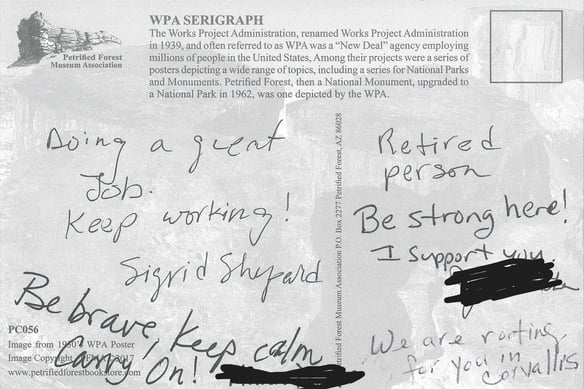 Petrified Forest
Museum Association
WPA SERIGRAPH
The Works Project Administration, renamed Works Project Administration
in 1939, and often referred to as WPA was a “New Deal” agency employing
millions of people in the United States, Among their projects were a series of
posters depicting a wide range of topics, including a series for National Parks
and Monuments. Petrified Forest, then a National Monument, upgraded to
a National Park in 1962, was one depicted by the WPA.
Doing a great
Job.
Keep working!
Sigrid Shepard
Be brave, Keep calm
Carry On!
PC056
Image from 1930's WPA Poster
Image Copyright 2017
www.petrifiedforestbookstore.com
Petrified Forest Museum Association P.O. Box 2277 Petrified Forest, AZ 86028
Retired
person
Be strong here!
I support you
We are rooting
for you in
Corvallis